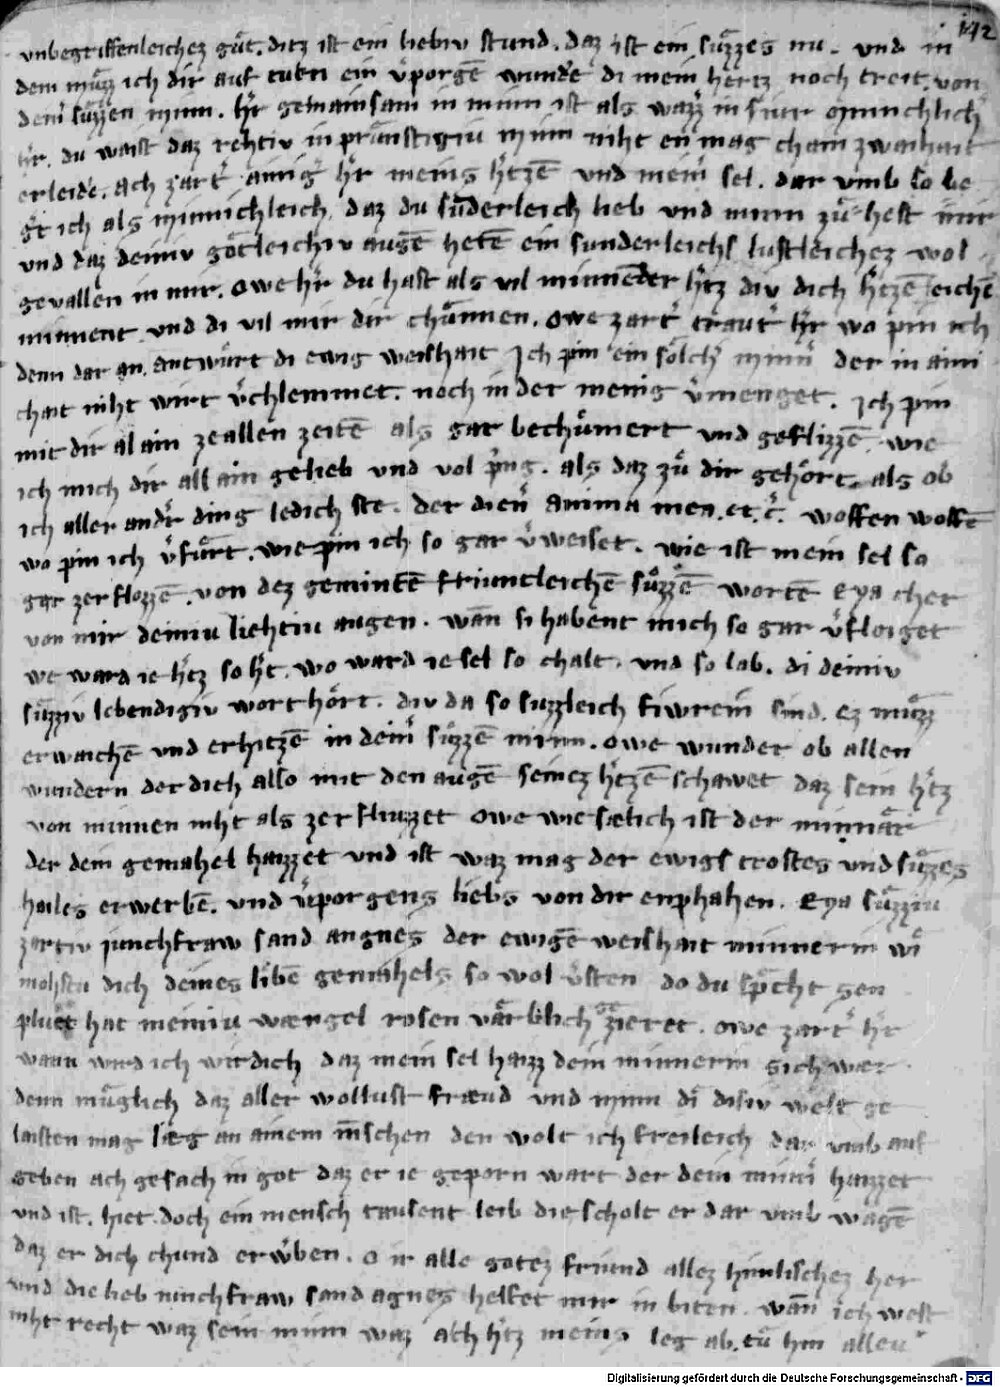 142
vnbegriffenleichez gůt. ditz ist ein liebiv stund. daz ist ein sůzzes nu. und in
dem můzz ich dir auf tvͤn ein v̓porgē wunde di mein hertz noch treit. von
dein̓ sůzzen minn. hr̓ gemainsam in minn ist als wazz̓ in fiur
hr̓. du waist daz rehtiv inprunstigiu minn niht en mag chain zwaihait
erleidē. Ach zart̓ ainig̓ hr̓ meins h̓tzē und mein̓ sel. dar umb so be
gr̓ ich als minnichleich daz du sunderleich lieb und minn zů hest mir
und daz deiniv gotleichiv augē hetē ein sunderleichs lustleichez wol
gevallen in mir. Owe hr̓ du hast als vil minnēder h̓tz div dich h̓tzēleichē
minnent und di vil mit dir chunnen. Owe zart̓ traut̓ hr̓ wo pin ich
denn dar an. antwurt di ewig weishait Ich pin ein solch̓ minn̓ der in aini
chait niht wirt v̓chlemmet. noch in der menig v̓menget. Ich pin
mit dir al ain zeallen zeitē als gar bechumert und geflizzē wie
ich mich dir all ain gelieb und vol pring. als daz zů dir gehort. als ob
ich aller andr̓ ding ledich ste. der dien̓ Anima mea. et. c̓. woffen woffē
wo pin ich v̓fůrt. wie pin ich so gar v̓weiset. wie ist mein sel so
gar zerflozzē. von dez gemintē friuntleichē sůzzē wortē Eya cher
von mir deiniu liehtiu augen. wan si habent mich so gar v̓floiget
we ward ie h̓tz so h̓t. wo ward ie sel so chalt. und so lab. di deiniv
sůzziv lebendigiv wort hort. div da so suzzleich fiwrein̓ sind. ez můzz
erwaichē und erhitzē in dein̓ sůzzē minn. Owe wunder ob allen
wundern der dich also mit den augē seinez h̓tzē schawet daz sein h̓tz
von minnen niht als zerfliuzzet Owe wie sælich ist der minnær
der dein gemahel haizzet und ist waz mag der ewigs trostes und sůzzes
hailes erwerbē. und v̓porgens liebs von dir enphahen. Eya sůzziu
zartiv junchfraw sand angnes der ewigē weishait minnerin wi
mohstu dich deines libē gemahels so wol v̓sten do du sp̓cht gen
plůt hat meiniu wængel rosen varblich gezieret. Owe zart̓ hr̓
wann wird ich wirdich daz mein sel haizz dein minnerin Sich wær
denn muglich daz aller wollust fræud und minn di disiv welt ge
laisten mag læg an ainem mēschen den wolt ich freileich dar umb auf
geben ach gesach in got daz er ie geporn wart der dein minn̓ haizzet
und ist. hiet doch ein mensch tausent leib die scholt er dar umb wagē
daz er dich chund erw̓ben. O ir alle gotez friund allez himlischez her
und die lieb junchfraw sand agnes helfet mir in biten. wan ich west
niht recht waz sein minn waz ach h̓tz meins leg ab. tů hin allen
Digitalisierung gefördert durch die Deutsche Forschungsgemeinschaft - DFG